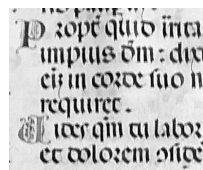 Propt̄ quid irrita
impius dm̄: dix
eı̄z in corde suo n
requiret.
Uides qm̄ tu labor
et dolorem ɔside